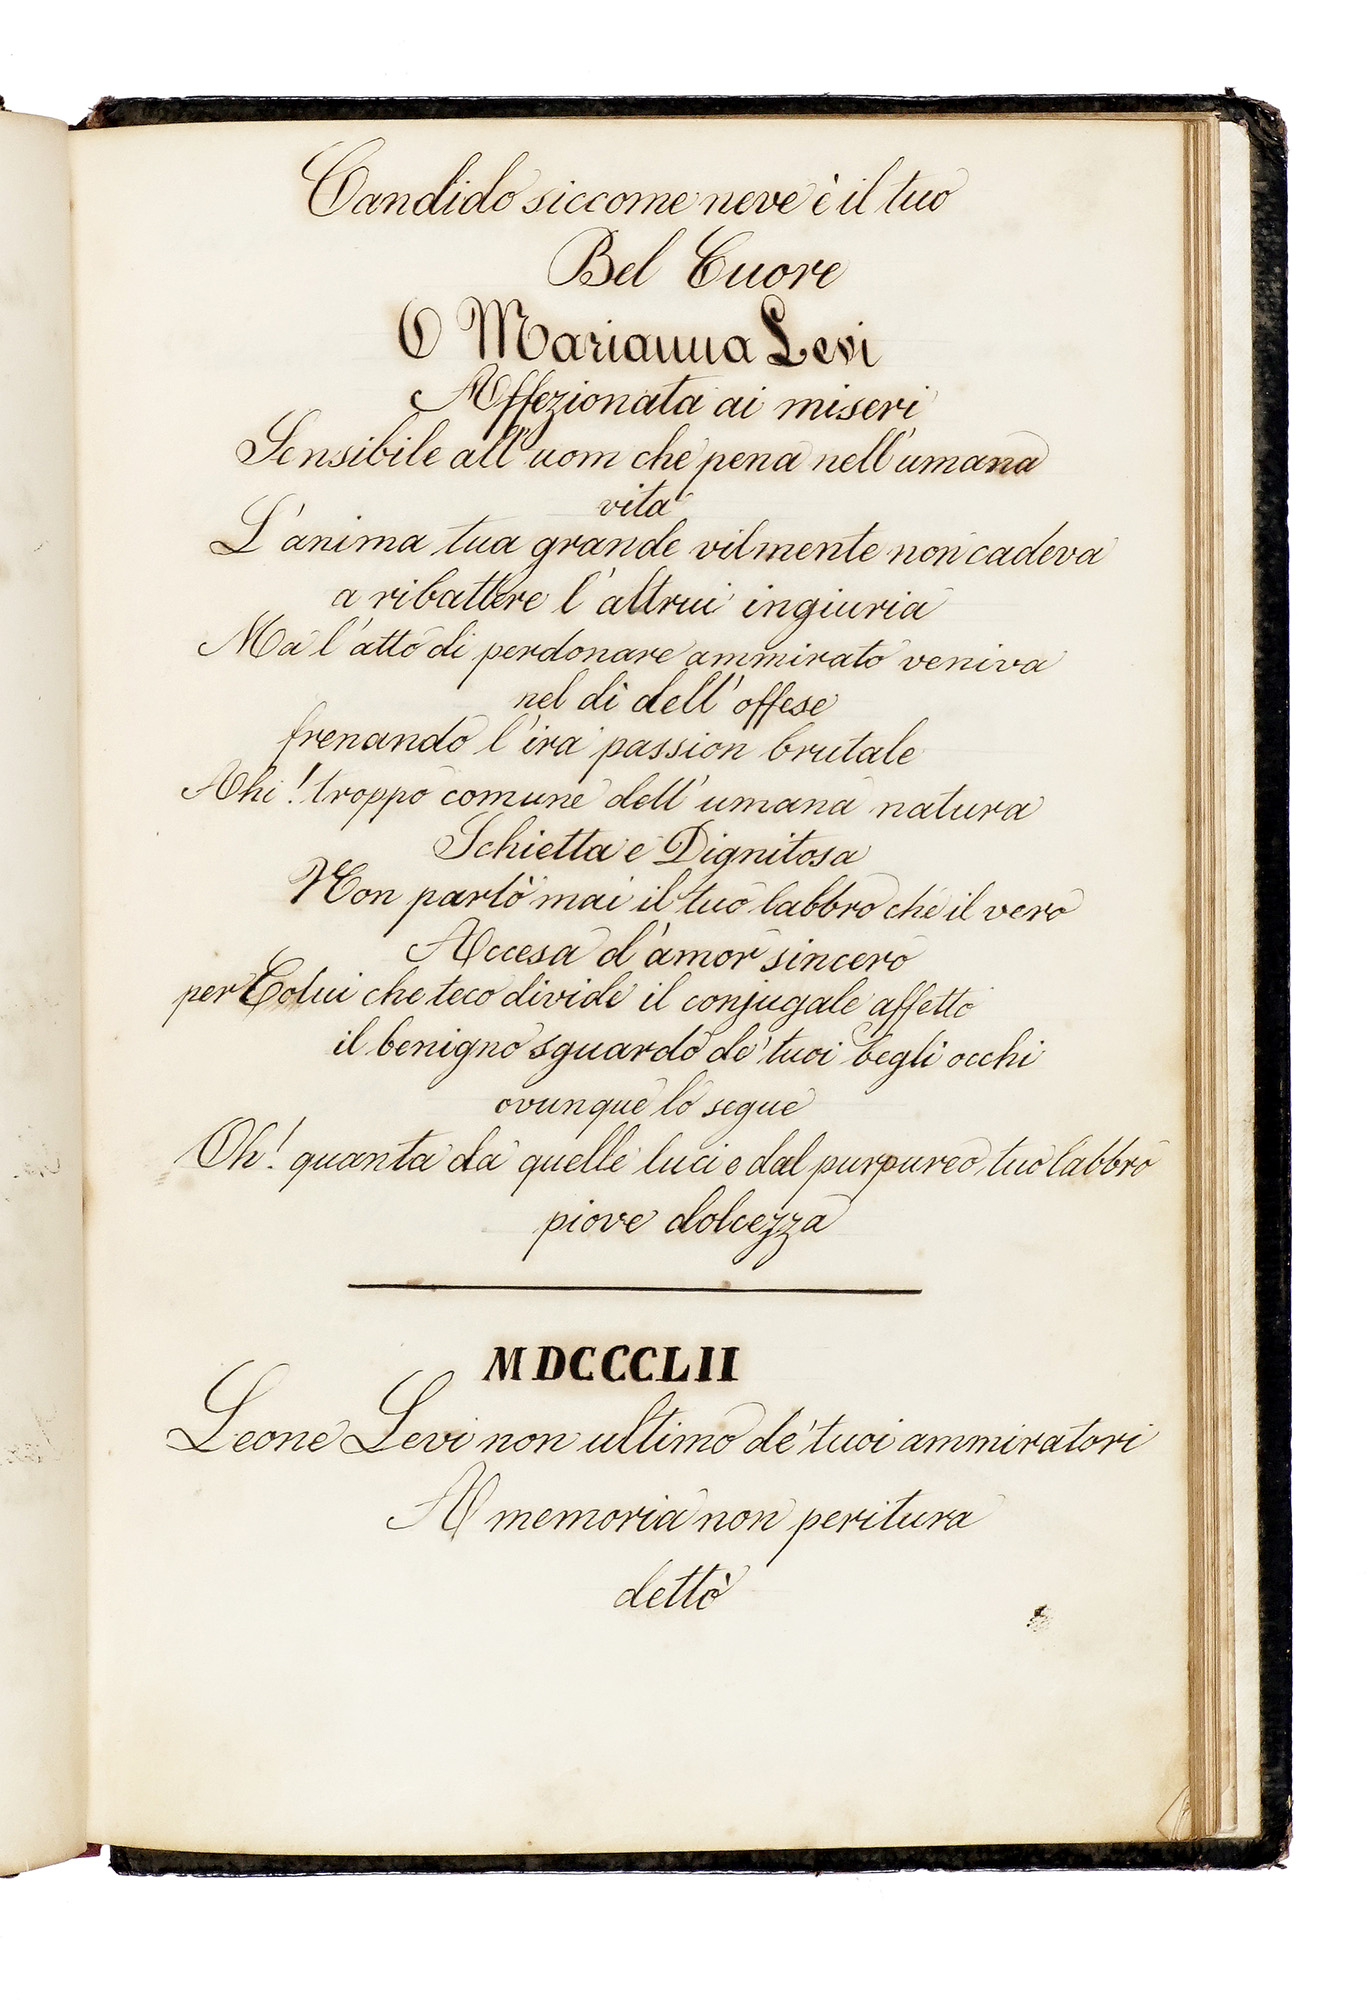 Candido siccome neve è il tuo
Bel Cuore
O Marianna Levi
Affezionata ai miseri
Sensibile all'uom che pena nell'umana
vita
L'anima tua grande vilmente non cadeva
a ribattere l'altrui ingiuria
Ma l'atto di perdonare ammirato veniva
nel dì dell'offese
frenando l'ira passion brutale
Ahi! troppo comune dell'umana natura
Schietta e Dignitosa
Non parlò mai il tuo labbro che il vero
Accesa d'amor sincero
per Colui che teco divide il conjugale affetto
il benigno sguardo de' tuoi begli occhi
ovunque lo segue
Oh! quanta da quelle luci e dal purpureo tuo labbro
piove dolcezza
MDCCCLII
Leone Levi non ultimo de' tuoi ammiratori
A memoria non peritura
dettò